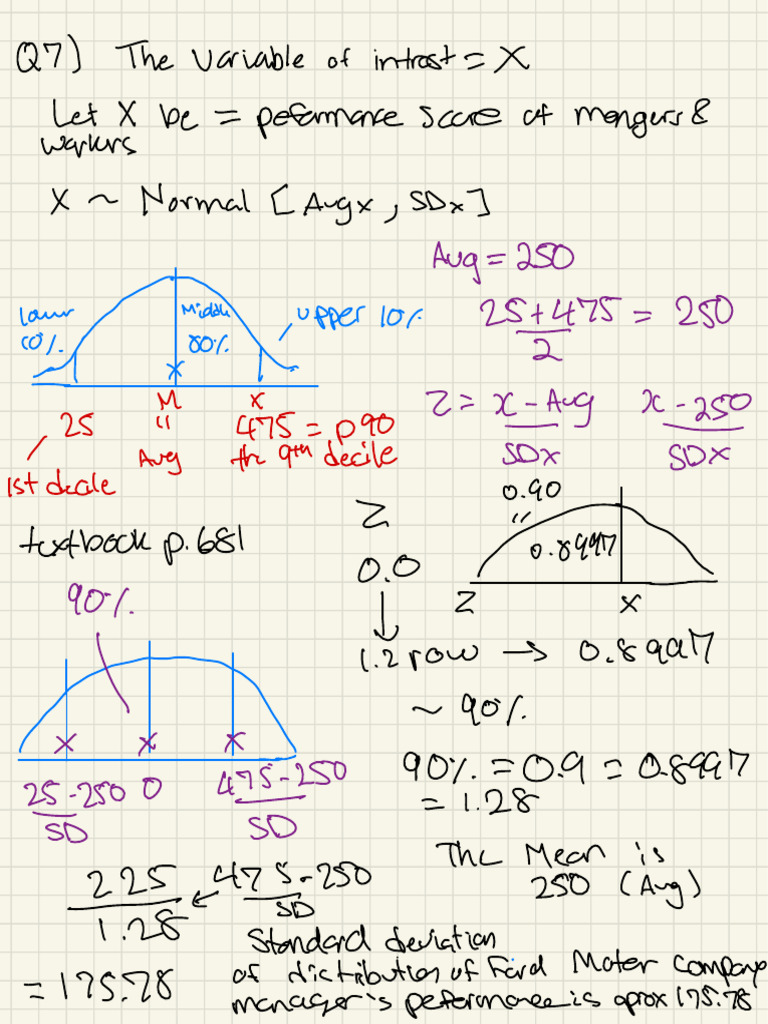 Q7) The variable of introst = X
Let X be = peformance score of mengers &
workers
X ~ Normal [Avgx, SDx]
Avg = 250
25 + 475 / 2 = 250
lower 10%
Middle 80%
upper 10%
X
25
M
"
Avg
X
475 = p90
the 9th decile
1st decile
Z = x - Avg / SDx
x - 250 / SDx
textbook p.681
Z
0.0
↓
1.2 row → 0.8997
~ 90%
0.90
"
0.8997
Z X
90%
X X X
25 - 250 / SD
0
475 - 250 / SD
90% = 0.9 = 0.8997
= 1.28
The Mean is
250 (Avg)
225 / 1.28 ← 475 - 250 / SD
= 175.78
Standard deviation
of distribution of Ford Moter company
manager's peformance is aprox 175.78